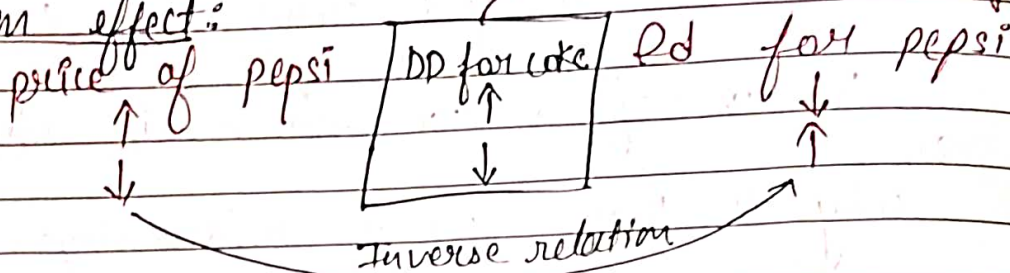 effect:
price of pepsi DD for coke Qd for pepsi
↑ ↑ ↓
↓ ↓ ↑
Inverse relation